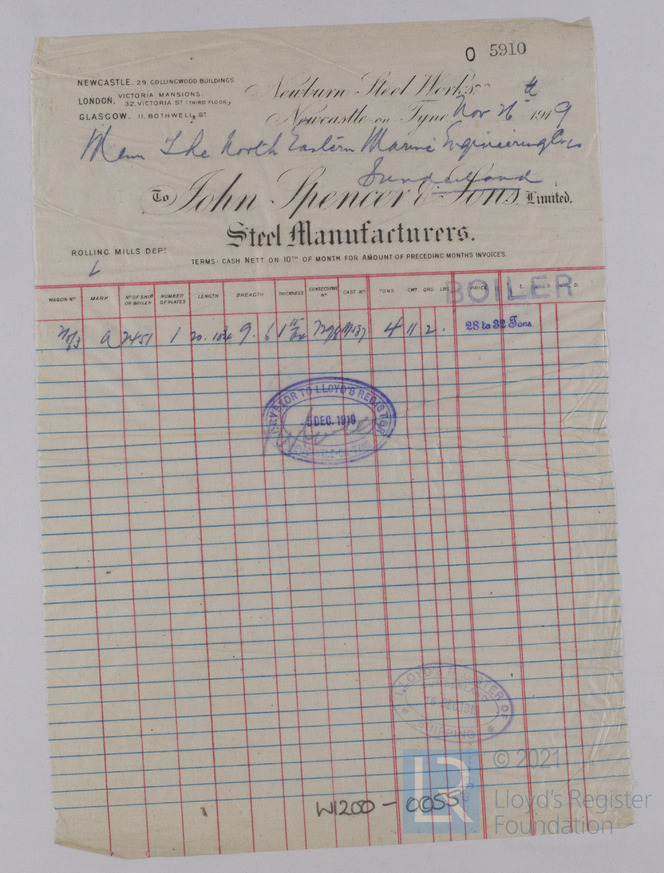 O 5910
NEWCASTLE. 29. COLLINGWOOD BUILDINGS
LONDON. VICTORIA MANSIONS. 32. VICTORIA ST (THIRD FLOOR)
GLASGOW. 11. BOTHWELL ST
Newburn Steel Works.
Newcastle on Tyne Nov 26th 1919
The North Eastern Marine Engineering Co
Sunderland
To John Spencer & Sons Limited.
Steel Manufacturers.
ROLLING MILLS DEPT
TERMS: CASH NETT ON 10TH OF MONTH FOR AMOUNT OF PRECEDING MONTHS INVOICES.
BOILER
WAGON No MARK No OF SHIP OR BOILER NUMBER OF PLATES LENGTH BREADTH THICKNESS CONSECUTIVE No CAST No TONS CWT QRS LBS PRICE £ S D
2451 1 9. 6 4 11 2. 28 to 32 Tons
SURVEYOR TO LLOYD'S REGISTER
5 DEC. 1919
LLOYD'S REGISTER OF
SHIPPING
W1200 - 0055
LR
© 2021
Lloyd's Register
Foundation